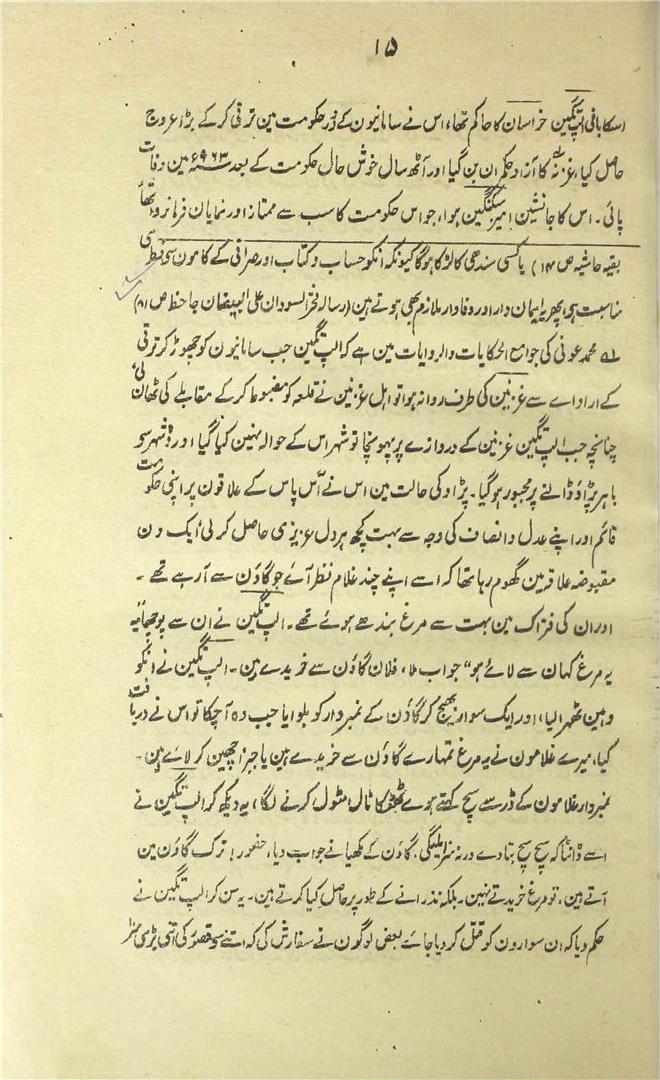 ۱۵
اسکا بانی الپ تگین خراسان کا حاکم تھا، اس نے سامانیون کے دَورِ حکومت مین ترقی کر کے بڑا عروج
حاصل کیا، غزنہ کا آزاد حکمران بن گیا اور آٹھ سال خوش حال حکومت کے بعد ۹۶۳ء مین وفات
پائی۔ اس کا جانشین امیر سبکتگین ہوا، جو اس حکومت کا سب سے ممتاز اور نمایان فرمانروا تھا
بقیہ حاشیہ ص ۱۴) یا کسی سندھی کا لڑکا ہو گا کیونکہ انکو حساب و کتاب اور صرافی کے کامون سے فطری
مناسبت ہی، پھر یہ ایمان دار اور وفادار ملازم بھی ہوتے ہین (رسالہ فخر السودان علی البیضان جاحظ ص ۸۱)
لے محمد عوفی کی جوامع الحکایات والروایات مین ہے کہ الپ تگین جب سامانیون کو چھوڑ کر ترقی
کے ارادے سے غزنین کی طرف روانہ ہوا تو اہل غزنین نے قلعہ کو مضبوط کر کے مقابلے کی ٹھان لی،
چنانچہ جب الپ تگین غزنین کے دروازے پر پہونچا تو شہر اس کے حوالہ نہین کیا گیا اور وہ شہر سے
باہر پڑاؤ ڈالنے پر مجبور ہو گیا۔ پڑاو کی حالت مین اس نے آس پاس کے علاقون پر اپنی حکومت
قائم اور اپنے عدل و انصاف کی وجہ سے بہت کچھ ہر دل عزیزی حاصل کر لی، ایک دن
مقبوضہ علاقہ مین گھوم رہا تھا کہ اسے اپنے چند غلام نظر آئے جو گاؤن سے آ رہے تھے۔
اور ان کی فتراک مین بہت سے مرغ بندھے ہوئے تھے۔ الپ تگین نے ان سے پوچھا یہ
یہ مرغ کہان سے لائے ہو“ جواب ملا، فلان گاؤن سے خریدے ہین۔ الپ تگین نے انکو
وہین ٹھہرا لیا، اور ایک سوار بھیج کر گاؤن کے نمبردار کو بلوایا جب وہ آ چکا تو اس نے دریافت
کیا، میرے غلامون نے یہ مرغ تمہارے گاؤن سے خریدے ہین یا جبراً چھین کر لائے ہین۔
نمبردار غلامون کے ڈر سے سچ کہتے ہوے ٹھٹھکا ٹال مٹول کرنے لگا، یہ دیکھ کر الپ تگین نے
اسے ڈانٹا کہ سچ سچ بتا دے ورنہ سزا ملیگی، گاؤن کے مکھیا نے جواب دیا، حضور! ترک گاؤن مین
آتے ہین، تو مرغ خریدتے نہین۔ بلکہ نذرانے کے طور پر حاصل کیا کرتے ہین۔ یہ سن کر الپ تگین نے
حکم دیا کہ ان سوارون کو قتل کر دیا جائے بعض لوگون نے سفارش کی کہ اتنے سے قصور کی اتنی بڑی سزا